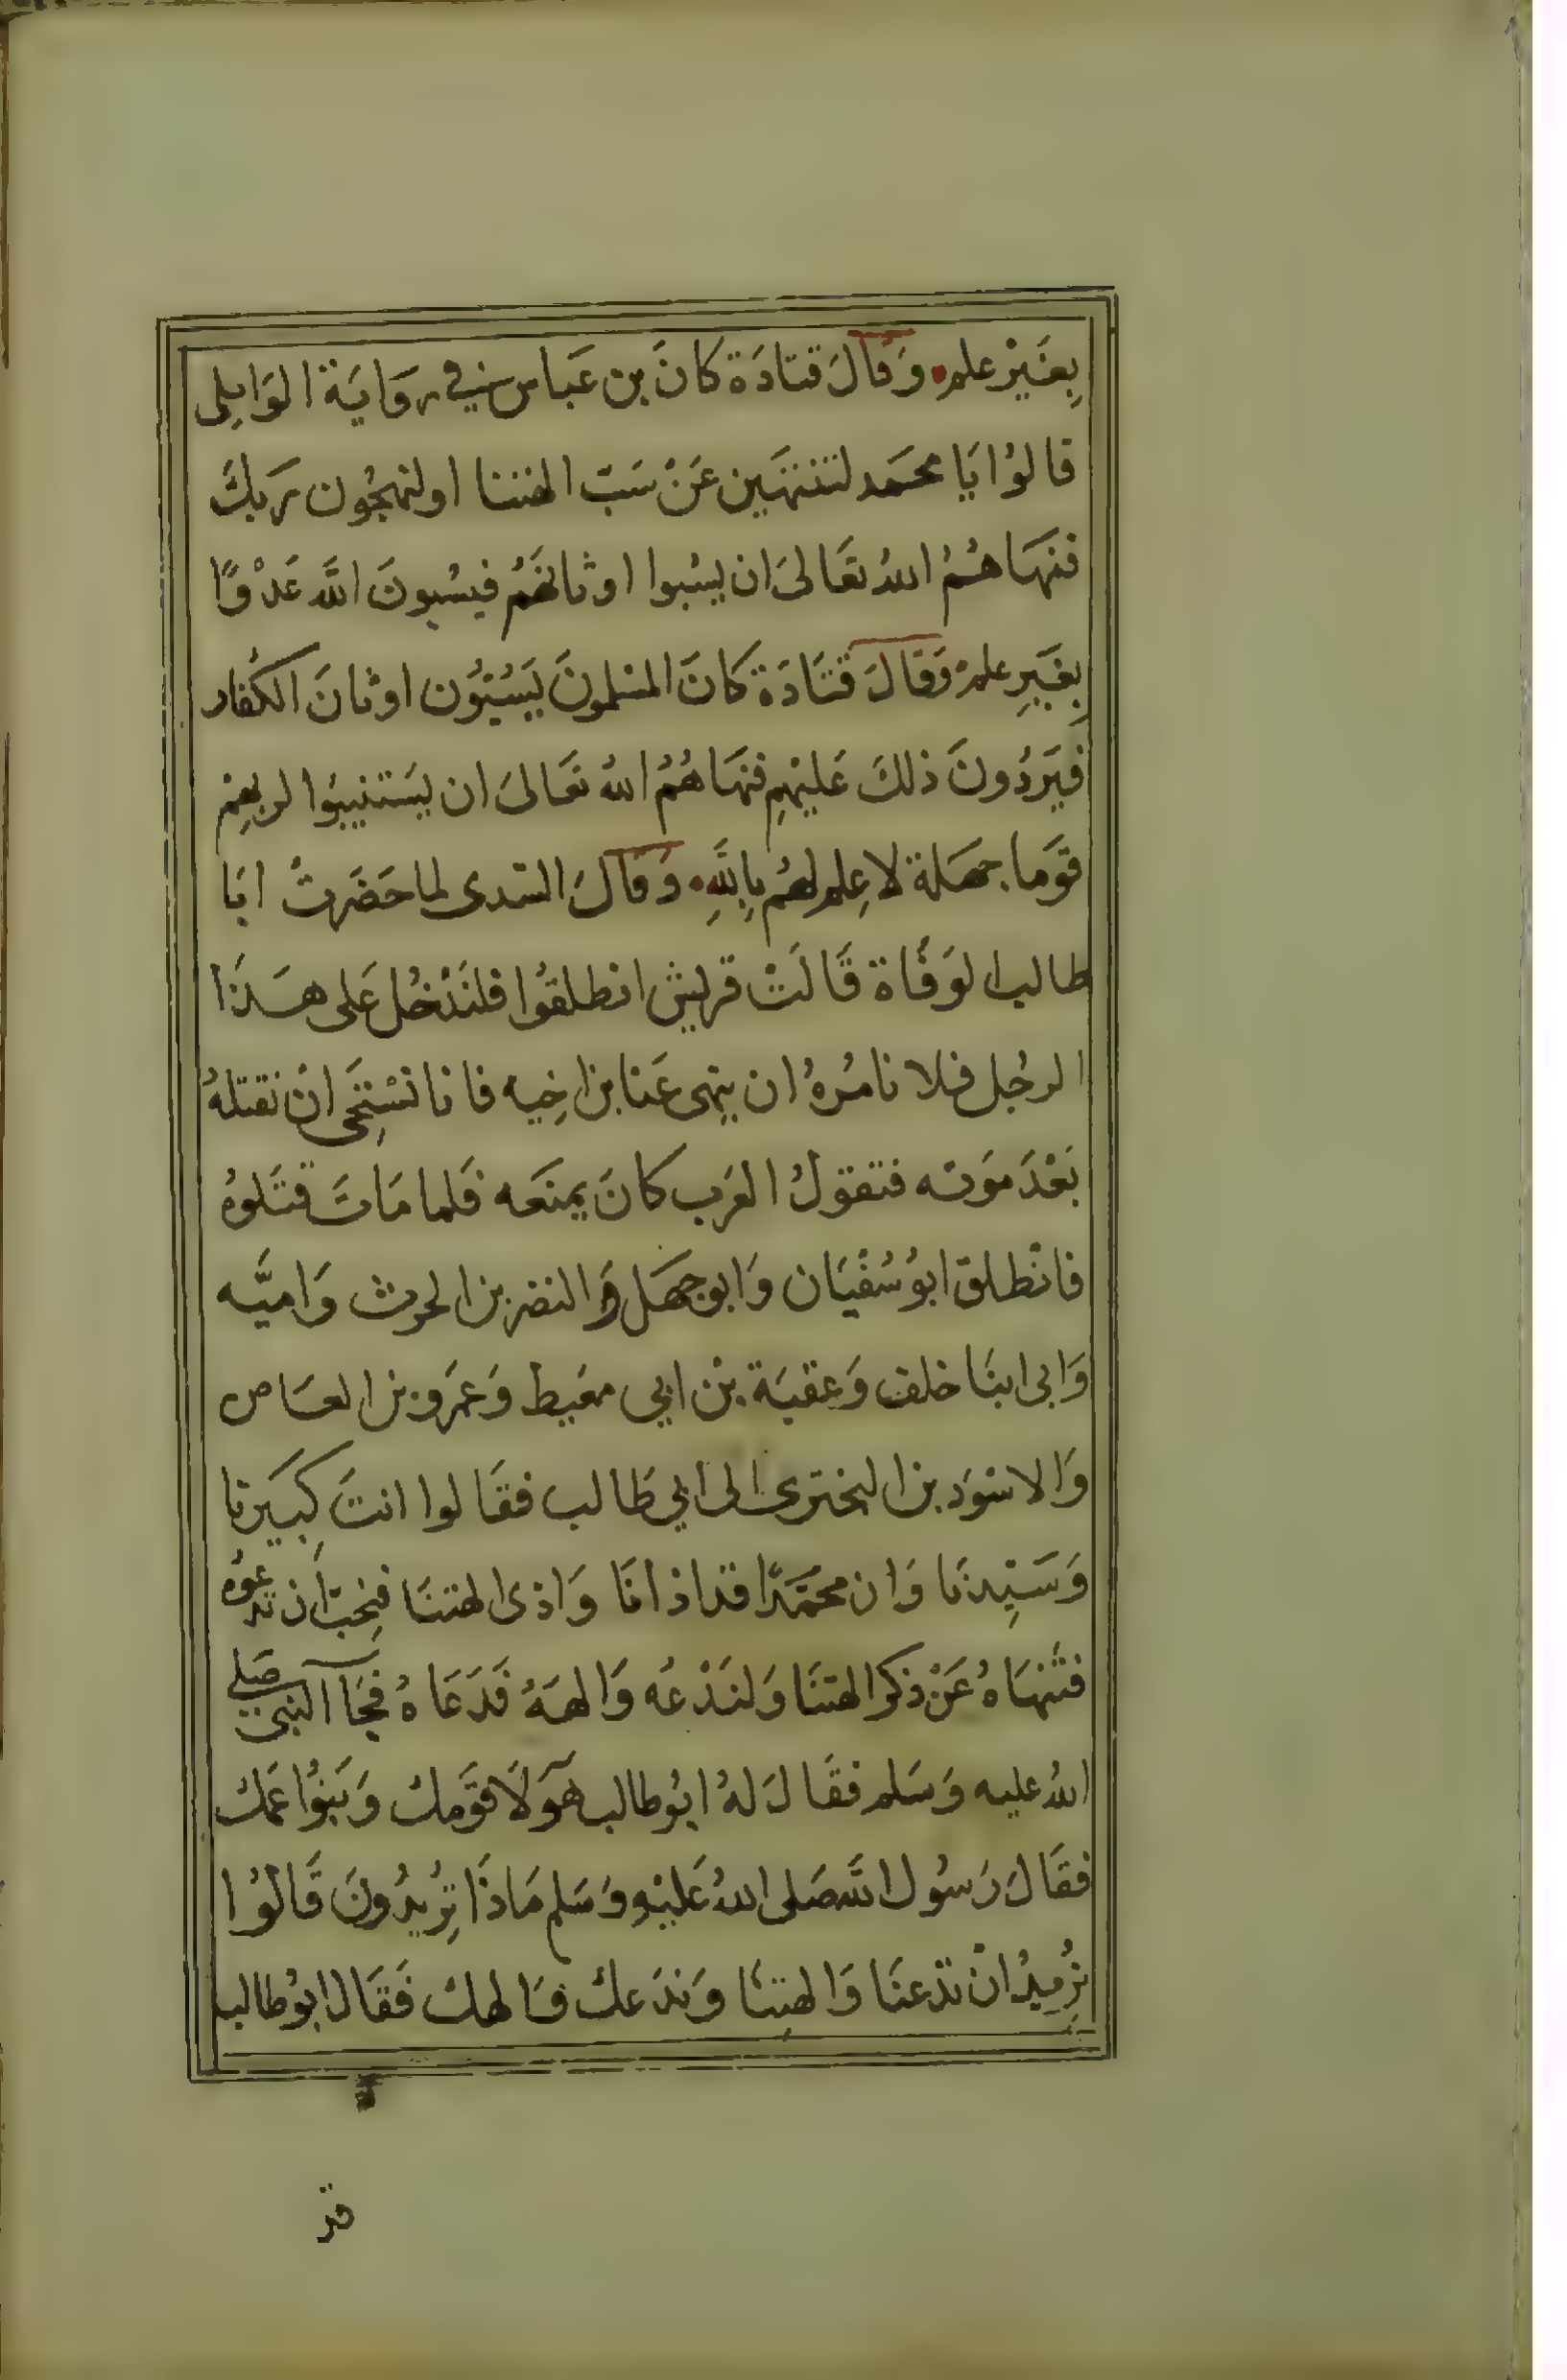 بِغَيْرِ علم وَقَالَ قتادَة كانَ بن عَباس في رِوَايَة الوَابِلى
قالوُا يَا محمَد لتنتهَين عَنْ سَبّ الهتنا اولنهجُون رَبكَ
فنهَاهُمُ اللهُ تعَالىَ ان يسُبوا اوثانهَمُ فيسُبونَ اللَّه عَدْوًا
بِغَيرِ علم وَقَالَ قتَادَة كانَ المسْلمونَ يَسُبوُن اوثانَ الكُفار
فيَردُونَ ذلكَ عَليْهِم فنهَاهُمُ اللهُ تعَالىَ ان يَستنيبوُا لربهِم
قوَما جهَلة لا عِلم لهُم بِاللَّهِ وَقَالَ السّدى لما حَضَرتْ ابَا
طالب الوَفَاة قَالَتْ قريش انطلقوُا فلنَدْخُل عَلى هَذَا
الرجُل فلا نامُرهُ ان ينهى عَنا بن اخِيه فانا نسْتَحِى انْ نقتلهُ
بَعْدَ مَوته فتقولُ العَرب كانَ يمنعَه فَلما مَاتَ قتَلوهُ
فانْطلق ابوُ سُفْيَان وَابو جهَل وَالنضر بن الحرث وَاميَّه
وَابى ابنَا خلف وَعقبَة بْن ابي معَيط وَعَمرَو بن العَاص
وَالاسْوَد بن البخترى الى ابي طَالب فقَالوا انتَ كِبَيرنا
وَسَيِّدنَا وَان محمَّدًا قد اذانَا وَاذى الهتنَا فنحِبّ ان تدعوُه
فتَنهَاهُ عَنْ ذكر الهتنَا وَلنَدْعُه وَالههَُ فَدَعَاهُ فجَآ النبى صَلى
اللهُ عليه وَسَلم فقَالَ لهُ ابوُ طالب هَوَلَا قوَمك وَبَنوُا عَمك
فقَالَ رَسوُل اللَّه صَلى اللهُ عَليْهِ وَسَلم مَاذَا تُريدُونَ قَالوُا
نُريدُ انْ تدعنَا وَالهتِنَا وَندَعك وَالهك فَقَالَ ابوُ طالب
قد